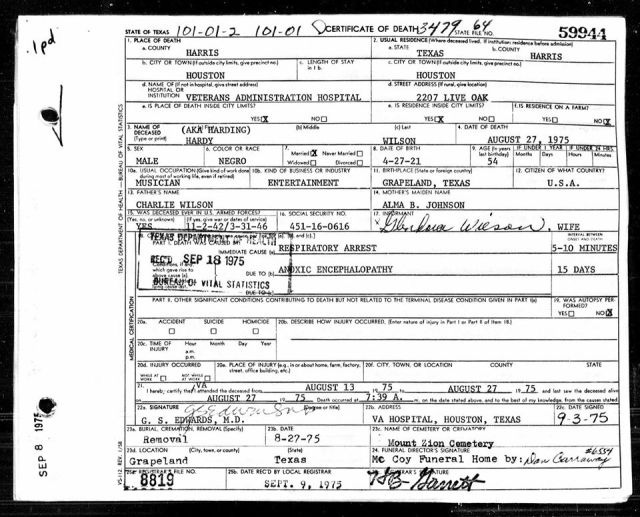 .1pd
STATE OF TEXAS 101-01-2 101-01 CERTIFICATE OF DEATH 3479 64 STATE FILE NO. 59944
1. PLACE OF DEATH
a. COUNTY
HARRIS
2. USUAL RESIDENCE (Where deceased lived. If institution: residence before admission)
a. STATE
TEXAS
b. COUNTY
HARRIS
b. CITY OR TOWN (If outside city limits, give precinct no.)
HOUSTON
c. LENGTH OF STAY in 1 b.
c. CITY OR TOWN (If outside city limits, give precinct no.)
HOUSTON
d. NAME OF (If not in hospital, give street address) HOSPITAL OR INSTITUTION
VETERANS ADMINISTRATION HOSPITAL
d. STREET ADDRESS (If rural, give location)
2207 LIVE OAK
e. IS PLACE OF DEATH INSIDE CITY LIMITS?
YES X NO
e. IS RESIDENCE INSIDE CITY LIMITS?
YES X NO
f. IS RESIDENCE ON A FARM?
YES NO X
3. NAME OF DECEASED (Type or print)
(AKA HARDING)
HARDY
(b) Middle
(c) Last
WILSON
4. DATE OF DEATH
AUGUST 27, 1975
5. SEX
MALE
6. COLOR OR RACE
NEGRO
7. Married X Never Married
Widowed Divorced
8. DATE OF BIRTH
4-27-21
9. AGE (In years last birthday)
54
IF UNDER 1 YEAR
Months Days
IF UNDER 24 HRS.
Hours Min.
10a. USUAL OCCUPATION (Give kind of work done during most of working life, even if retired)
MUSICIAN
10b. KIND OF BUSINESS OR INDUSTRY
ENTERTAINMENT
11. BIRTHPLACE (State or foreign country)
GRAPELAND, TEXAS
12. CITIZEN OF WHAT COUNTRY?
U.S.A.
13. FATHER'S NAME
CHARLIE WILSON
14. MOTHER'S MAIDEN NAME
ALMA B. JOHNSON
15. WAS DECEASED EVER IN U.S. ARMED FORCES?
(Yes, no, or unknown) (If yes, give war or dates of service)
YES 11-2-42/3-31-46
16. SOCIAL SECURITY NO.
451-16-0616
17. INFORMANT
Wilson, WIFE
PART I. DEATH WAS CAUSED BY:
IMMEDIATE CAUSE (a)
RESPIRATORY ARREST
INTERVAL BETWEEN ONSET AND DEATH
5-10 MINUTES
TEXAS DEPARTMENT OF HEALTH
REC'D SEP 18 1975
BUREAU OF VITAL STATISTICS
DUE TO (b)
ANOXIC ENCEPHALOPATHY
15 DAYS
DUE TO (c)
PART II. OTHER SIGNIFICANT CONDITIONS CONTRIBUTING TO DEATH BUT NOT RELATED TO THE TERMINAL DISEASE CONDITION GIVEN IN PART I(a)
19. WAS AUTOPSY PERFORMED?
YES NO X
20a. ACCIDENT SUICIDE HOMICIDE
20b. DESCRIBE HOW INJURY OCCURRED. (Enter nature of injury in Part I or Part II of item 18.)
20c. TIME OF INJURY
Hour Month Day Year
a.m.
p.m.
20d. INJURY OCCURRED
WHILE AT WORK NOT WHILE AT WORK
20e. PLACE OF INJURY (e.g., in or about home, farm, factory, street, office building, etc.)
20f. CITY, TOWN, OR LOCATION COUNTY STATE
21. I hereby certify that VA attended the deceased from AUGUST 13 1975 to AUGUST 27 1975 and last saw the deceased alive
AUGUST 27 1975 Death occurred at 7:39 A. m. on the date stated above, and to the best of my knowledge, from the causes stated
22a. SIGNATURE (Degree or title)
G. S. EDWARDS, M.D.
22b. ADDRESS
VA HOSPITAL, HOUSTON, TEXAS
22c. DATE SIGNED
9-3-75
23a. BURIAL, CREMATION, REMOVAL (Specify)
Removal
23b. DATE
8-27-75
23c. NAME OF CEMETERY OR CREMATORY
Mount Zion Cemetery
23d. LOCATION (City, town, or county) (State)
Grapeland Texas
24. FUNERAL DIRECTOR'S SIGNATURE
Mc Coy Funeral Home by: Don Carraway #6554
25a. REGISTRAR'S FILE NO.
8819
25b. DATE REC'D BY LOCAL REGISTRAR
SEPT. 9, 1975
25c. REGISTRAR'S SIGNATURE
Garrett
TEXAS DEPARTMENT OF HEALTH—BUREAU OF VITAL STATISTICS
MEDICAL CERTIFICATION
VS-112 REV. 1/58
SEP 8 1975